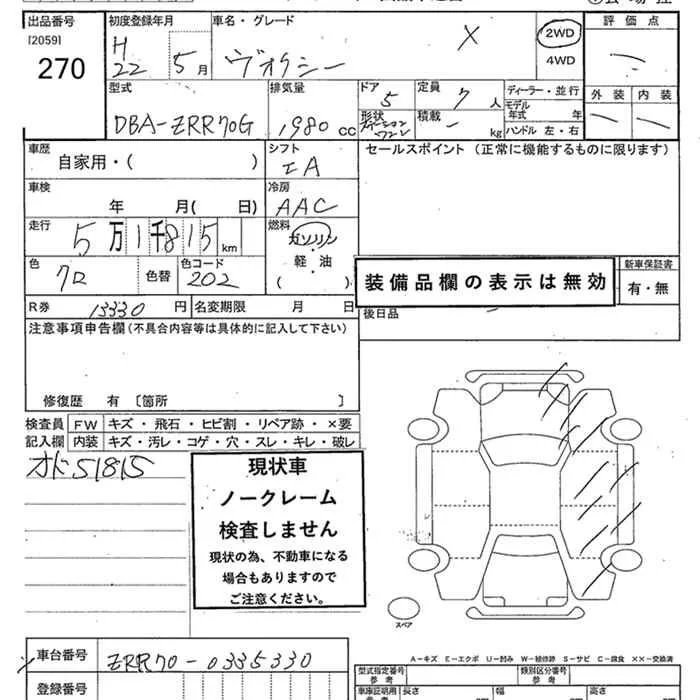 出品番号
[2059]
270
初度登録年月
H
22 5月
車名・グレード
ヴォクシー X
2WD
4WD
評価点
外装 内装
型式
DBA-ZRR70G
排気量
1980 cc
ドア
5
定員
7人
形状
積載
kg
ディーラー・並行
モデル
年式 年
ハンドル 左・右
車歴
自家用・( )
シフト
IA
セールスポイント(正常に機能するものに限ります)
車検
年 月( 日)
冷房
AAC
走行
5万1千815km
燃料
ガソリン
軽・油
( )
色
クロ
色替
色コード
202
装備品欄の表示は無効
新車保証書
有・無
R券
13330円
名変期限 月 日
後日品
注意事項申告欄(不具合内容等は具体的に記入して下さい)
修復歴 有 〔箇所 〕
検査員
記入欄
FW キズ・飛石・ヒビ割・リペア跡・×要
内装 キズ・汚レ・コゲ・穴・スレ・キレ・破レ
オド51815
現状車
ノークレーム
検査しません
現状の為、不動車になる
場合もありますので
ご注意ください。
スペア
車台番号
ZRR70-0335330
登録番号
A-キズ E-エクボ U-凹み W-補修跡 S-サビ C-腐食 ××-交換済
型式指定番号
参考
類別区分番号
参考
車庫証明用
参考
長さ
幅
高さ